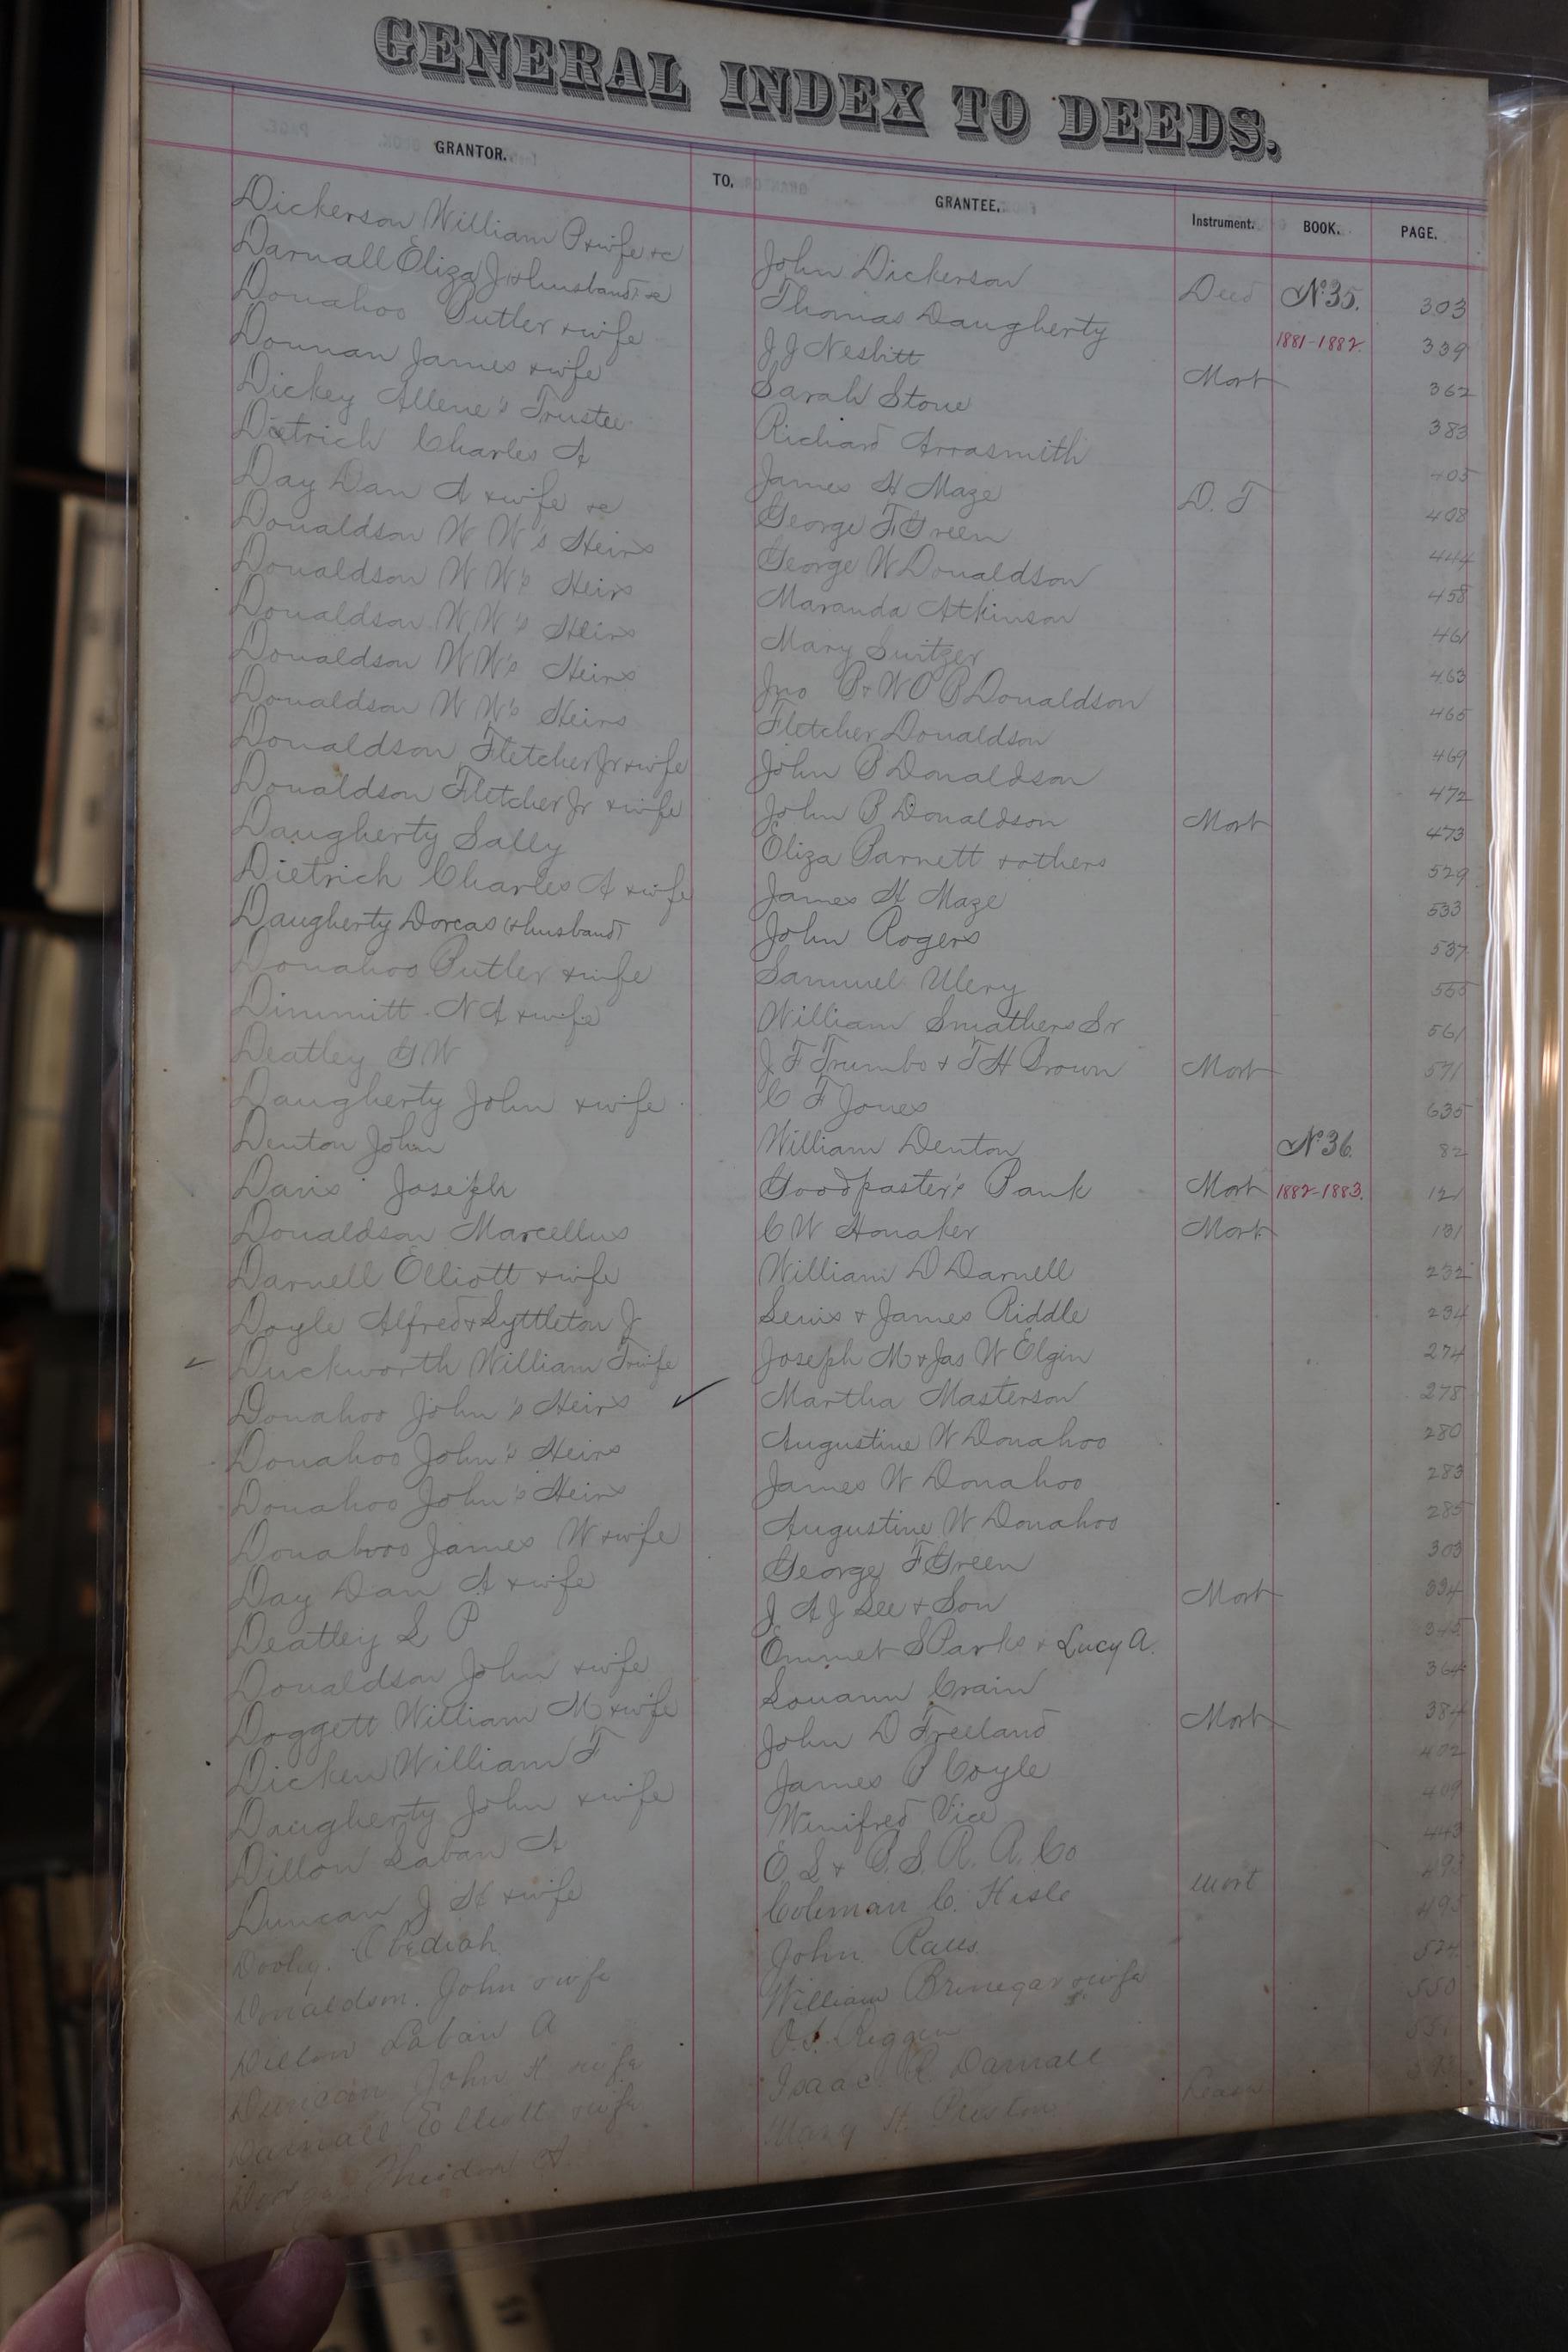 GENERAL INDEX TO DEEDS.
GRANTOR. TO, GRANTEE. Instrument. BOOK. PAGE.
Dickerson William P & wife &c John Dickerson Deed No 35. 303
Darnall Eliza J (& husband) &c Thomas Daugherty 1881-1882. 339
Donahoo Butler & wife J J Nesbitt Mort 362
Dounan James & wife Sarah Stone 383
Dickey Allene's Trustee Richard Arrasmith 405
Dietrich Charles A James H Maze D. T 408
Day Dan A & wife &c George F Green 444
Donaldson W W's Heirs George W Donaldson 458
Donaldson W W's Heirs Maranda Atkinson 461
Donaldson W W's Heirs Mary Switzer 463
Donaldson W W's Heirs Jno B & W O B Donaldson 465
Donaldson W W's Heirs Fletcher Donaldson 469
Donaldson Fletcher Jr & wife John B Donaldson 472
Donaldson Fletcher Jr & wife John B Donaldson Mort 473
Daugherty Sally Eliza Barnett & others 529
Dietrich Charles A & wife James H Maze 533
Daugherty Dorcas (& husband) John Rogers 537
Donahoo Butler & wife Samuel Ulery 555
Dimmitt N A & wife William Smathers Sr 561
Deatley G W J F Trumbo & T H Brown Mort 571
Daugherty John & wife C F Jones 635
Denton John William Denton No 36. 82
Davis Joseph Goodpaster's Bank Mort 1882-1883. 121
Donaldson Marcellus C W Honaker Mort 131
Darnell Elliott & wife William D Darnell 232
Doyle Alfred & Lyttleton J Lewis & James Riddle 234
Duckworth William T & wife Joseph M & Jas W Elgin 274
Donahoo John's Heirs ✓ Martha Masterson 278
Donahoo John's Heirs Augustine W Donahoo 280
Donahoo John's Heirs James W Donahoo 283
Donahoo James W & wife Augustine W Donahoo 285
Day Dan A & wife George F Green 303
Deatley L P J A J Lee & Son Mort 334
Donaldson John & wife Emmet S Parks & Lucy A. 345
Doggett William M & wife Louann Crain 364
Dicken William F John D Freeland Mort 384
Daugherty John & wife James P Coyle 402
Dillon Laban A Winifred Vice 409
Duncan J H & wife E. L & B. S. R. R. Co 443
Dooly. Obediah Coleman C. Hisle mort
Donaldson. John & wife John Ralls 495
Dillon Laban A William Brinegar & wife 524
Duncan John H & wife 550
Darnall Elliott & wife Isaac R. Darnall
H. Preston Lease